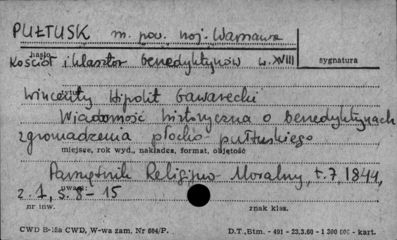 PUŁTUSK m. pow. woj. Warszawa
hasło
Kościół i klasztor benedyktynów w. XVIII
sygnatura
Wincenty Hipolit Gawarecki
Wiadomość historyczna o benedyktynach
zgromadzenia płocko pułtuskiego
miejsce, rok wyd., nakładca, format, objętość
Pamiętnik Religijno Moralny, t. 7 1844,
z. 1, s. 8-15
uwagi
nr inw.
znak klas.
CWD B-18a CWD, W-wa zam. Nr 804/P.
D.T.,Bim. - 491 - 23.3.60 - 1 300 000 - kart.